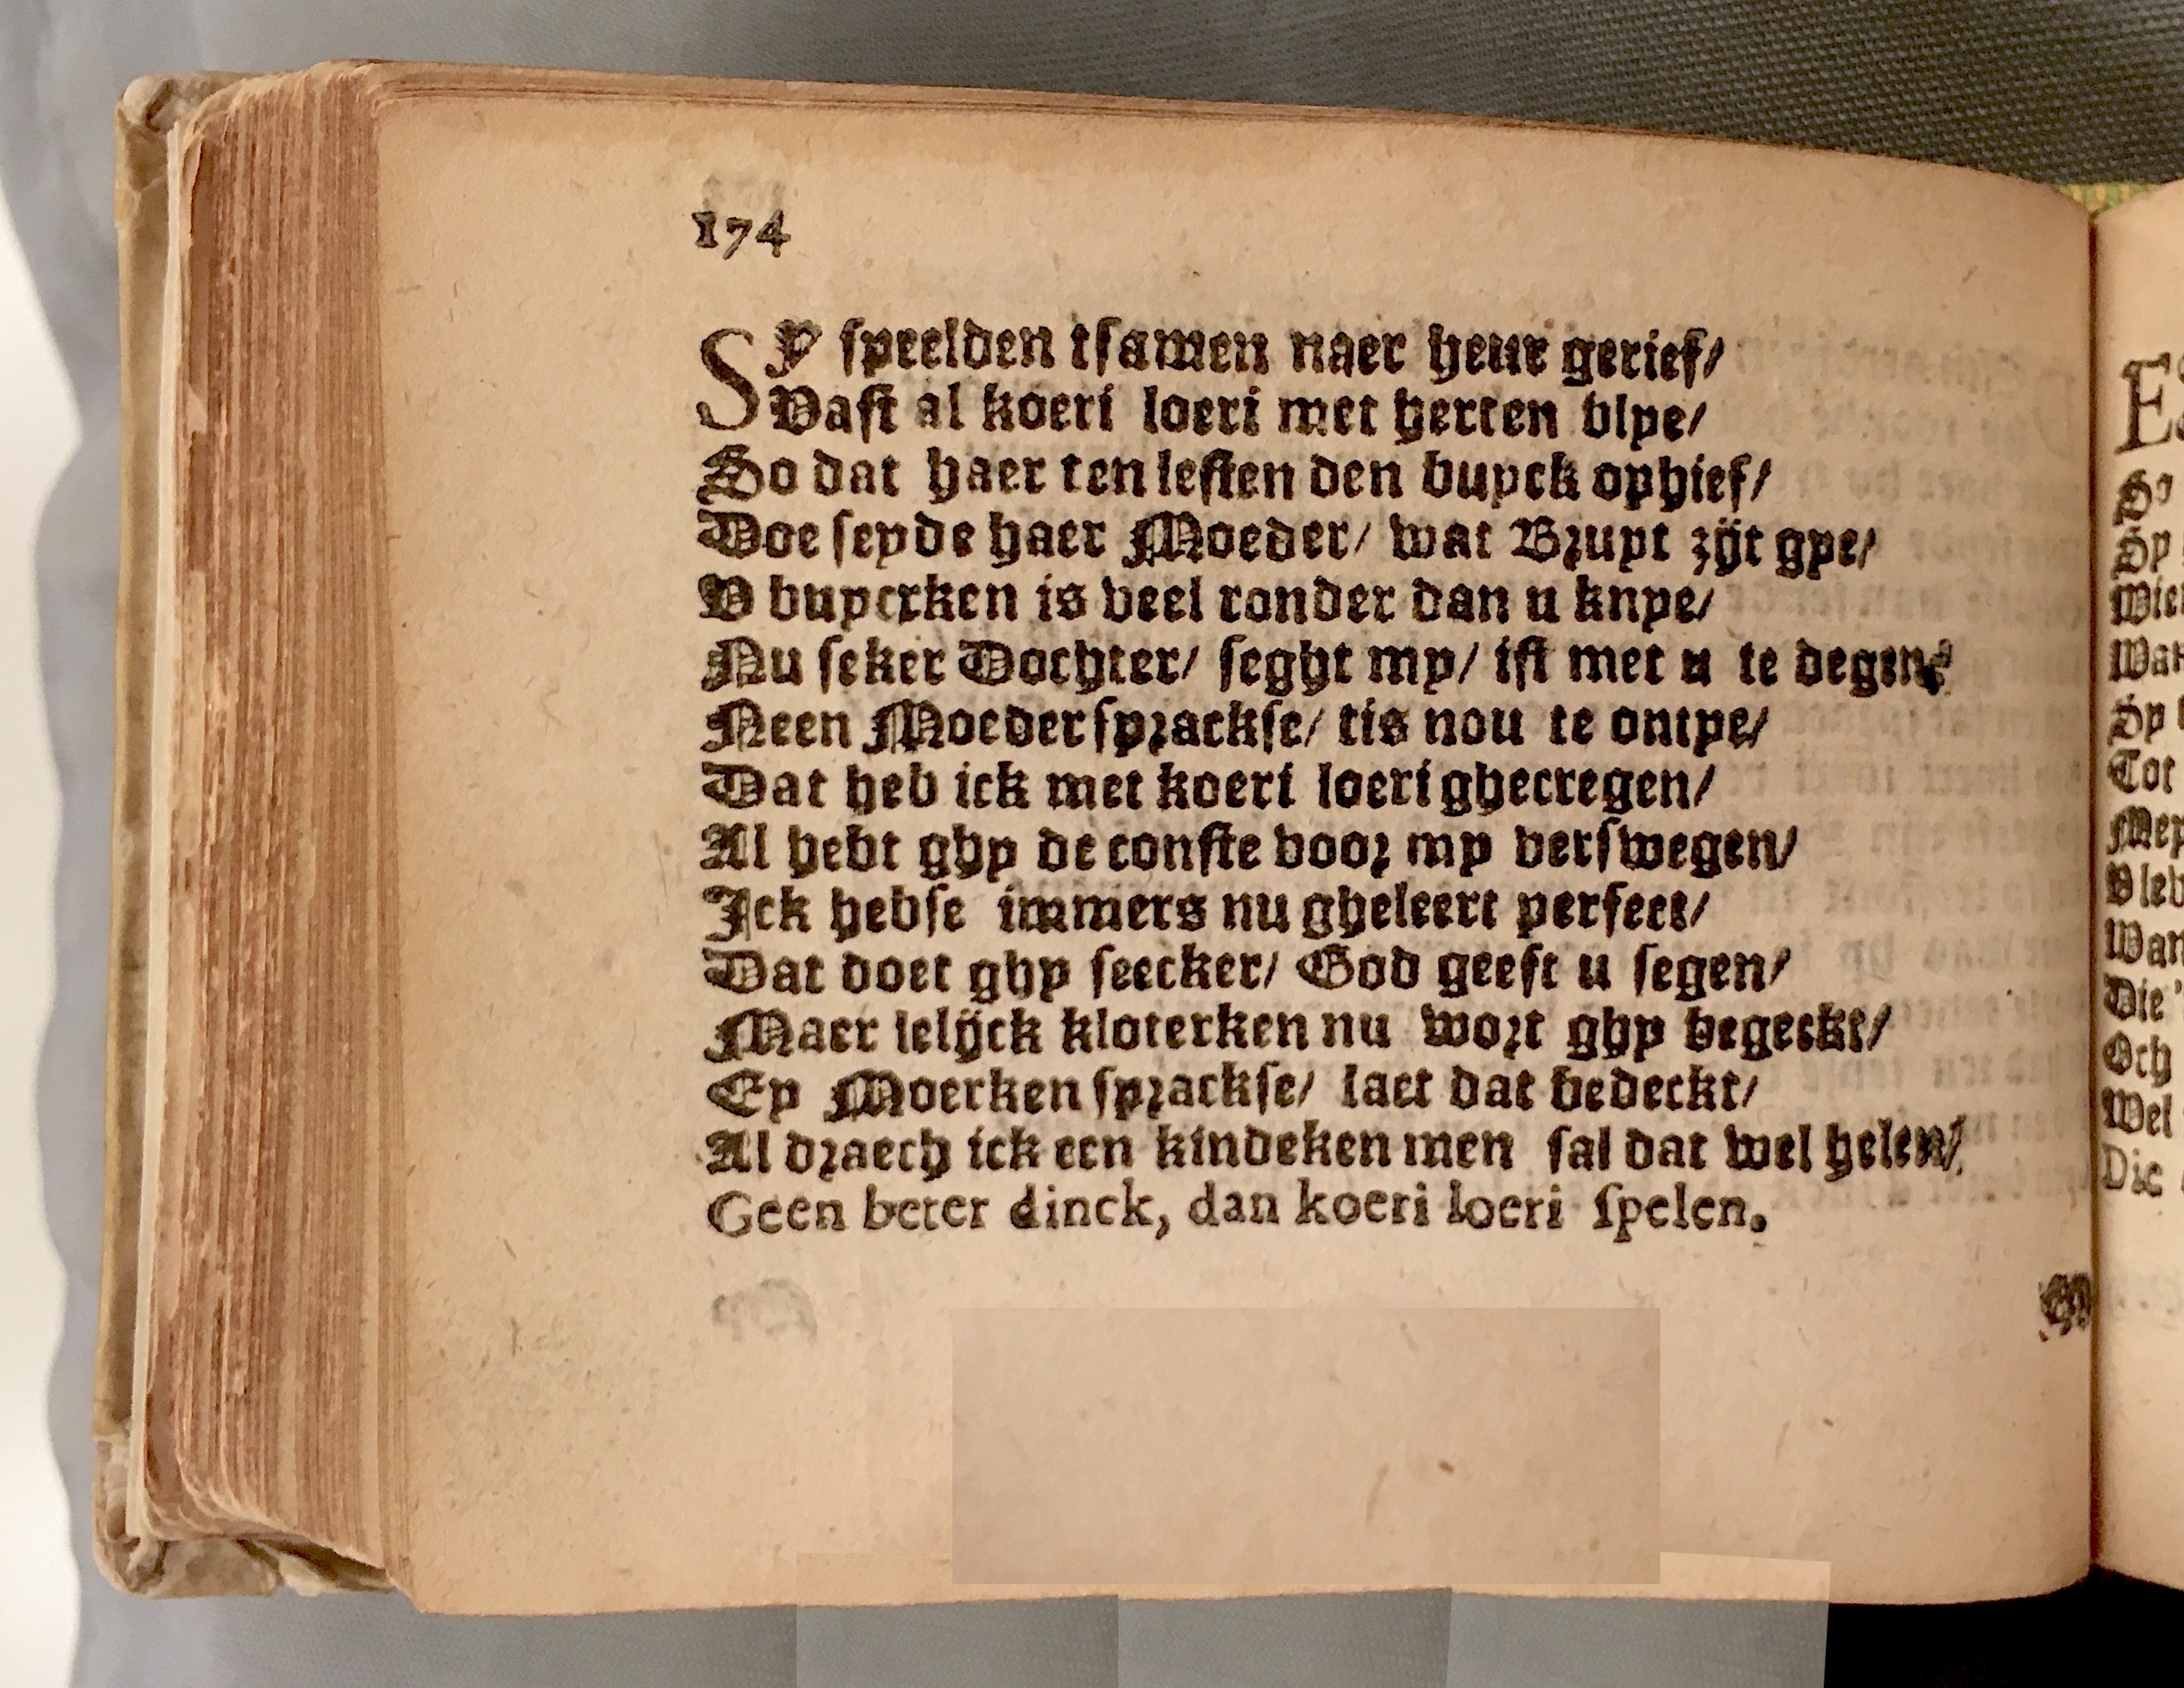 174
Sy speelden tsamen naer heur gerief/
Vast al koeri loeri met herten blye/
So dat haer ten lesten den buyck ophief/
Doe seyde haer Moeder/ wat Bruyt zijt gye/
V buycxken is veel ronder dan u knye/
Nu seker Dochter/ seght my/ ist met u te degen?
Neen Moeder sprackse/ tis nou te ontye/
Dat heb ick met koeri loeri ghecregen/
Al hebt ghy de conste voor my verswegen/
Ick hebse immers nu gheleert perfect/
Dat doet ghy seecker/ God geeft u segen/
Maer lelijck kloterken nu wort ghy begeckt/
Ey Moerken sprackse/ laet dat bedeckt/
Al draech ick een kindeken men sal dat wel helen/
Geen beter dinck, dan koeri loeri spelen.
So
Sy
Tot
Die
Och
Wel
Die